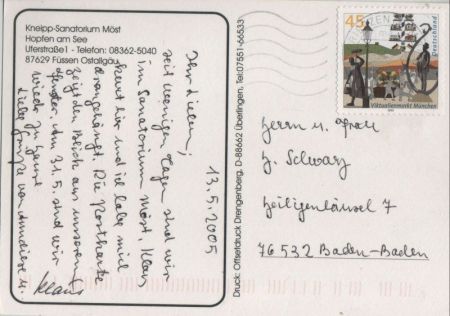 Kneipp-Sanatorium Möst
Hopfen am See
Uferstraße1 - Telefon: 08362-5040
87629 Füssen Ostallgäu
13.5.2005
Ihr Lieben,
seit wenigen Tagen sind wir
im Sanatorium Möst. Klaus
kurt hier und ich habe mich
drangehängt. Die Postkarte
zeigt den Blick aus unserem
Fenster. Am 31.5. sind wir
wieder zu Hause
Liebe Grüße von
Klaus
Druck: Offsetdruck Drengenberg, D-88662 Überlingen, Tel:07551-66533
45
Deutschland
Viktualienmarkt München
Herrn u. Frau
H. Schwarz
Heiligenhäusel 7
76532 Baden-Baden